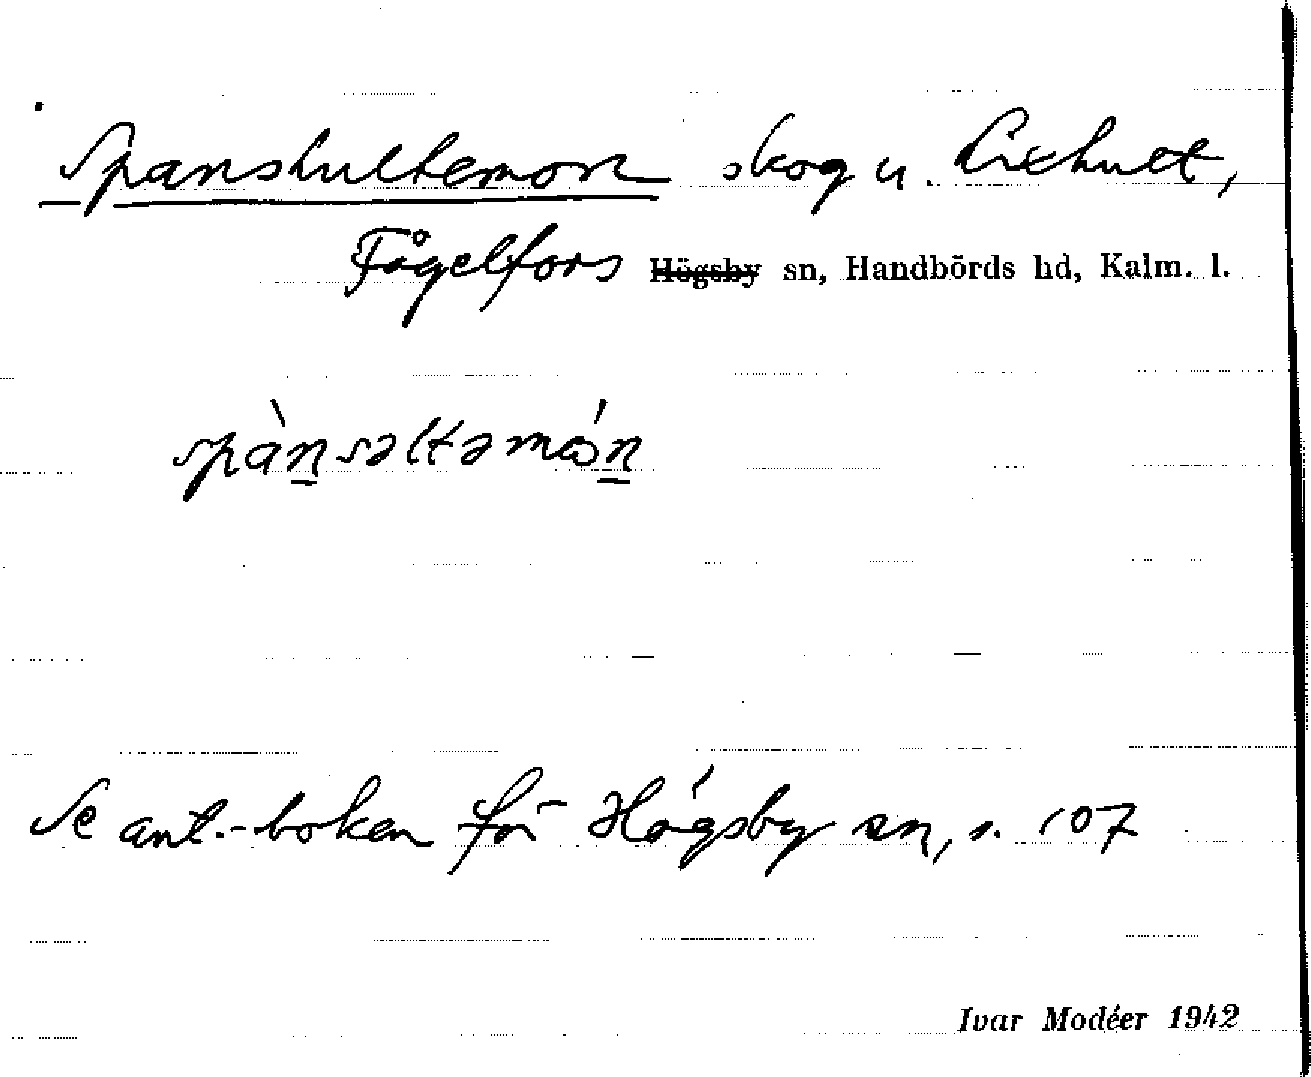 Spanshultemon skog u.
Fågelfors Högsby sn, Handbörds hd, Kalm. l.
spànsəltəmón
Se ant.-boken för Högsby sn, s. 107
Ivar Modéer 1942